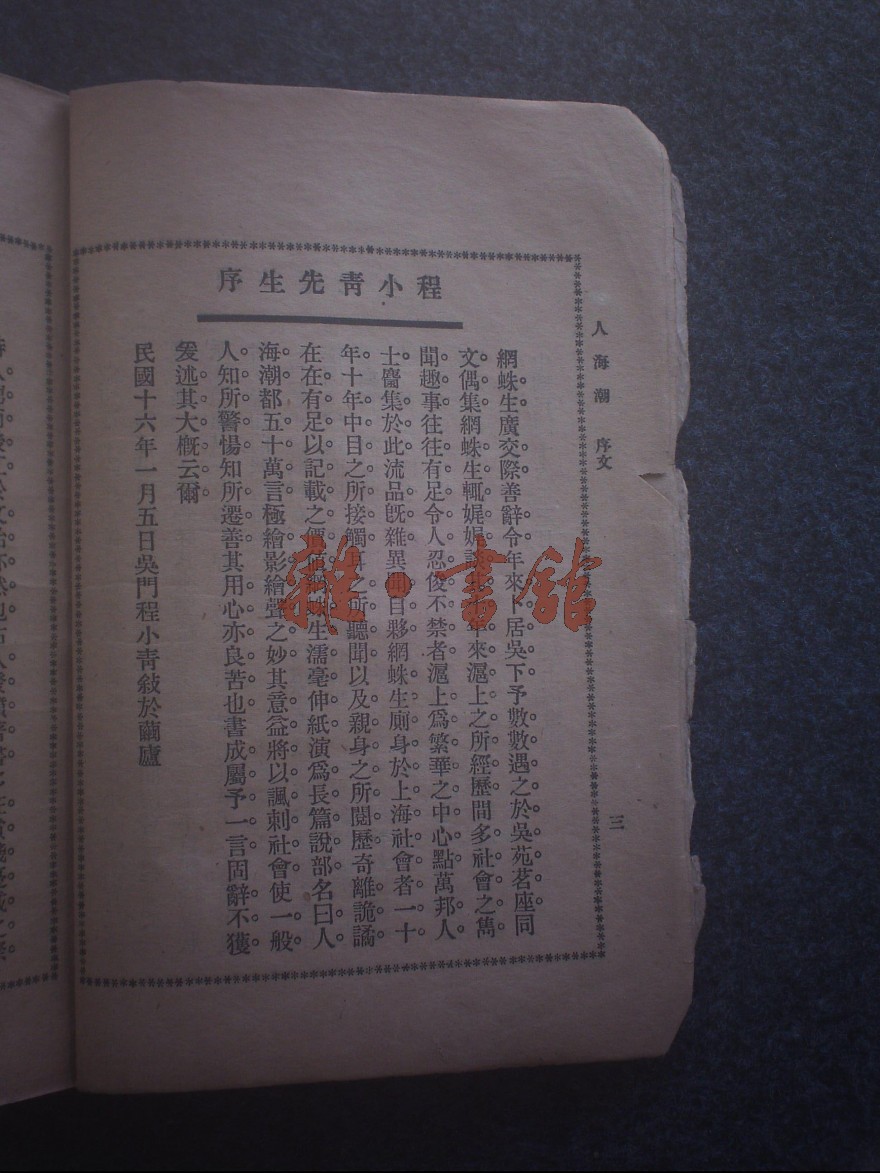 人海潮 序文 三
程小靑先生序
網蛛生廣交際。善辭令。年來卜居吳下。予數數遇之於吳苑茗座。同
文偶集。網蛛生輒娓娓談年來滬上之所經歷。間多社會之雋
聞趣事。往往有足令人忍俊不禁者。滬上爲繁華之中心點。萬邦人
士麕集於此。流品旣雜。異聞自夥。網蛛生廁身於上海社會者一十
年。十年中目之所接觸。耳之所聽聞。以及親身之所閱歷。奇離詭譎。
在在有足以記載之價值。網蛛生濡毫伸紙。演爲長篇說部。名曰人
海潮。都五十萬言。極繪影繪聲之妙。其意益將以諷刺社會。使一般
人知所警惕。知所遷善。其用心亦良苦也。書成。屬予一言。固辭不獲。
爰述其大槪云爾。
民國十六年一月五日吳門程小靑敍於繭廬
雜·書館